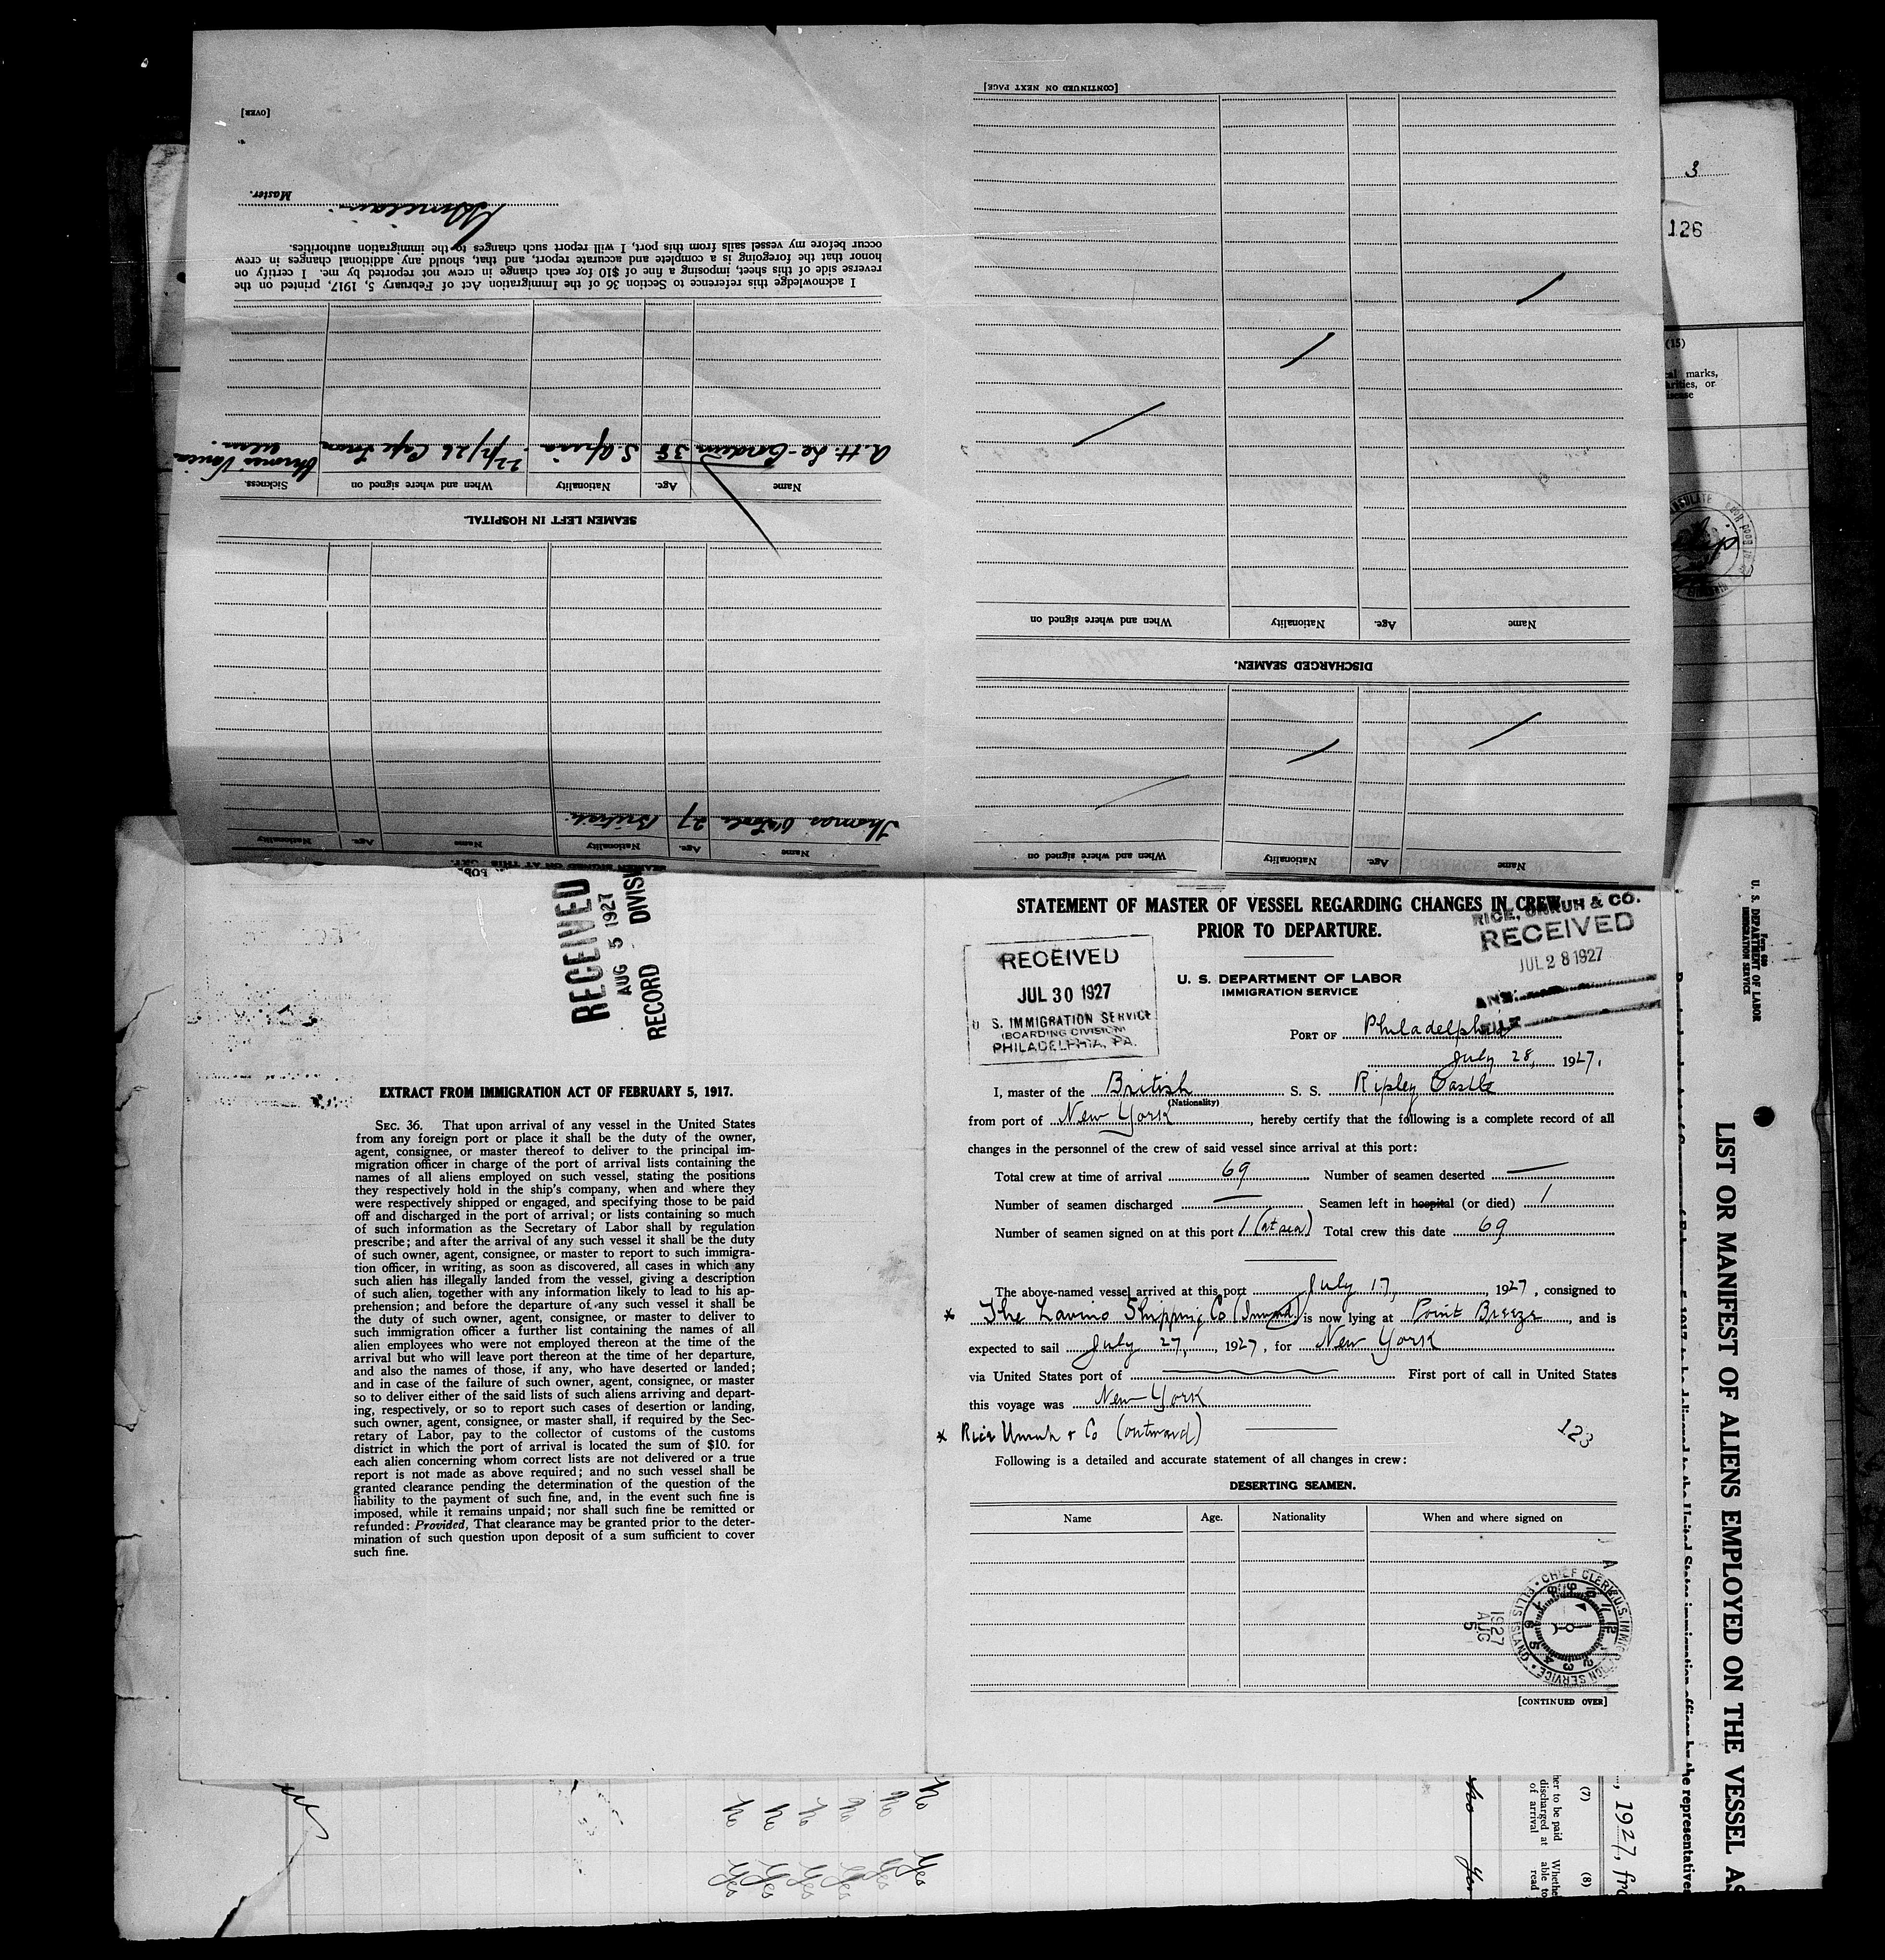 [OVER]
Master.
I acknowledge this reference to Section 36 of the Immigration Act of February 5, 1917, printed on the
reverse side of this sheet, imposing a fine of $10 for each change in crew not reported by me. I certify on
honor that the foregoing is a complete and accurate report, and that, should any additional changes in crew
occur before my vessel sails from this port, I will report such changes to the immigration authorities.
A. H. 38 S. Africa 22/7/26 Cape Town
Name Age. Nationality When and where signed on Sickness.
SEAMEN LEFT IN HOSPITAL.
Thomas 27 British
Name Age. Nationality Name Age. Nationality
SEAMEN SIGNED ON AT THIS PORT.
[CONTINUED ON NEXT PAGE]
Name Age. Nationality When and where signed on
DISCHARGED SEAMEN.
Name Age. Nationality When and where signed on
3
126
(15)
marks,
or
RECEIVED
AUG 5 1927
RECORD DIVISI
EXTRACT FROM IMMIGRATION ACT OF FEBRUARY 5, 1917.
SEC. 36. That upon arrival of any vessel in the United States
from any foreign port or place it shall be the duty of the owner,
agent, consignee, or master thereof to deliver to the principal im-
migration officer in charge of the port of arrival lists containing the
names of all aliens employed on such vessel, stating the positions
they respectively hold in the ship's company, when and where they
were respectively shipped or engaged, and specifying those to be paid
off and discharged in the port of arrival; or lists containing so much
of such information as the Secretary of Labor shall by regulation
prescribe; and after the arrival of any such vessel it shall be the duty
of such owner, agent, consignee, or master to report to such immigra-
tion officer, in writing, as soon as discovered, all cases in which any
such alien has illegally landed from the vessel, giving a description
of such alien, together with any information likely to lead to his ap-
prehension; and before the departure of any such vessel it shall be
the duty of such owner, agent, consignee, or master to deliver to
such immigration officer a further list containing the names of all
alien employees who were not employed thereon at the time of the
arrival but who will leave port thereon at the time of her departure,
and also the names of those, if any, who have deserted or landed;
and in case of the failure of such owner, agent, consignee, or master
so to deliver either of the said lists of such aliens arriving and depart-
ing, respectively, or so to report such cases of desertion or landing,
such owner, agent, consignee, or master shall, if required by the Sec-
retary of Labor, pay to the collector of customs of the customs
district in which the port of arrival is located the sum of $10. for
each alien concerning whom correct lists are not delivered or a true
report is not made as above required; and no such vessel shall be
granted clearance pending the determination of the question of the
liability to the payment of such fine, and, in the event such fine is
imposed, while it remains unpaid; nor shall such fine be remitted or
refunded: Provided, That clearance may be granted prior to the deter-
mination of such question upon deposit of a sum sufficient to cover
such fine.
STATEMENT OF MASTER OF VESSEL REGARDING CHANGES IN CREW
PRIOR TO DEPARTURE.
RICE, UNRUH & CO.
RECEIVED
JUL 28 1927
ANS.
FILE
RECEIVED
JUL 30 1927
U S. IMMIGRATION SERVICE
(BOARDING DIVISION)
PHILADELPHIA, PA.
U. S. DEPARTMENT OF LABOR
IMMIGRATION SERVICE
PORT OF Philadelphia
July 28, 1927.
I, master of the British S. S. Ripley Castle
(Nationality)
from port of New York, hereby certify that the following is a complete record of all
changes in the personnel of the crew of said vessel since arrival at this port:
Total crew at time of arrival 69 Number of seamen deserted —
Number of seamen discharged — Seamen left in hospital (or died) 1
Number of seamen signed on at this port 1 (at sea) Total crew this date 69
The above-named vessel arrived at this port July 17, 1927, consigned to
* The Lavino Shipping Co (Inward) is now lying at Point Breeze, and is
expected to sail July 27, 1927, for New York
via United States port of First port of call in United States
this voyage was New York
* Rice Unruh & Co (outward)
123
Following is a detailed and accurate statement of all changes in crew:
DESERTING SEAMEN.
Name Age. Nationality When and where signed on
CHIEF CLERK U.S. IMMIGRATION SERVICE ELLIS ISLAND
1927
AUG
5
[CONTINUED OVER]
Form 680
U. S. DEPARTMENT OF LABOR
IMMIGRATION SERVICE
LIST OR MANIFEST OF ALIENS EMPLOYED ON THE VESSEL AS
to be delivered to the United States immigration officer by the representatives
, 1927, fro
(7)
her to be paid
discharged at
of arrival
(8)
Whethe
able to
read
No Yes
No No No No No No
Yes Yes Yes Yes Yes Yes